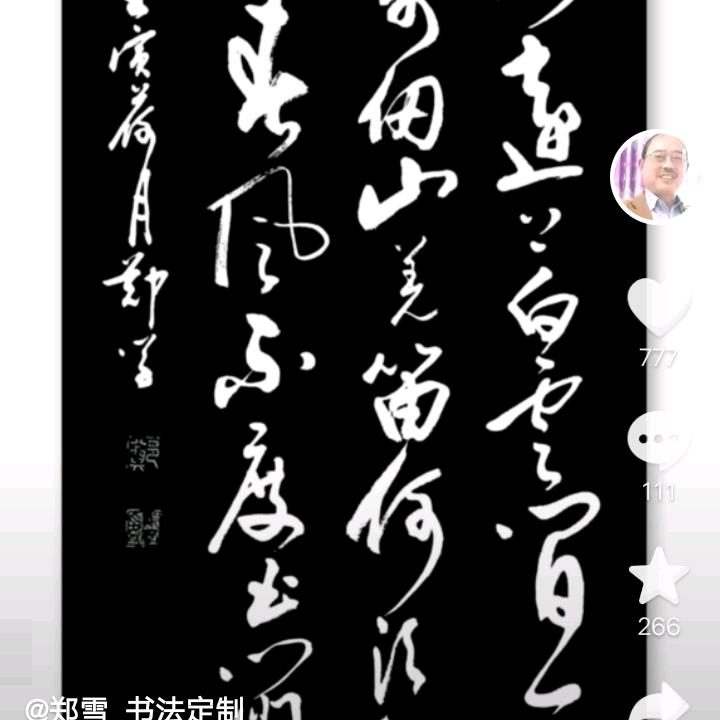 远上白云间一
仞山羌笛何须
春风不度玉门
寅荷月郑雪
777
111
266
@郑雪 书法定制